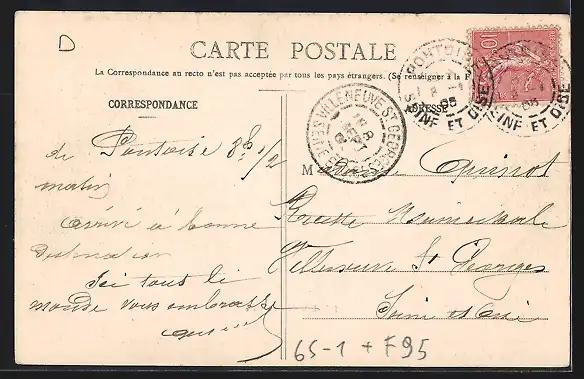 D
CARTE POSTALE
La Correspondance au recto n'est pas acceptée par tous les pays étrangers. (Se renseigner à la P
CORRESPONDANCE
ADRESSE
PONTOISE
SEINE ET OISE
VILLENEUVE ST GEORGES
10
de Pontoise 8h 1/2
matin
arrivé à bonne
destination
Ici tous le
monde vous embrasse
M
Route
Villeneuve St Georges
Seine et Oise
65-1 + F95